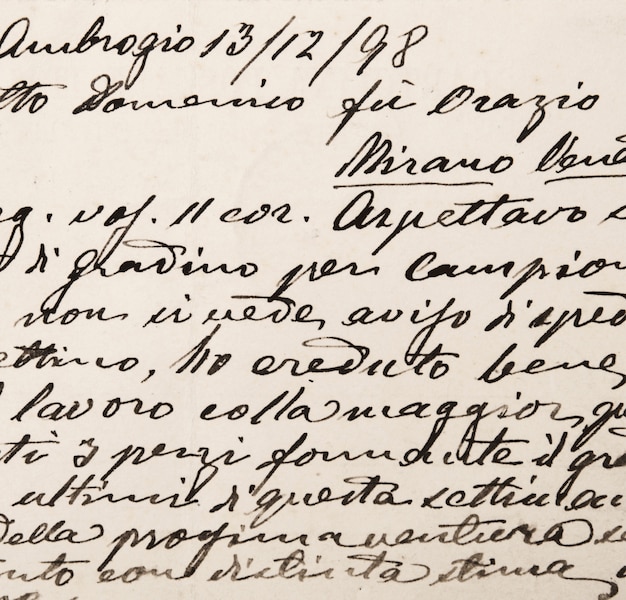 Ambrogio 13/12/98
tto Domenico fù Orazio
Mirano Vene
eg. vos. 11 cor. Aspettavo
di gradino per campion
non si vede aviso di sped
ettino, ho creduto bene
lavoro colla maggior
ti 3 pezzi formante il gra
ultimi di questa settima
della prossima ventura se
nto con distinta stima